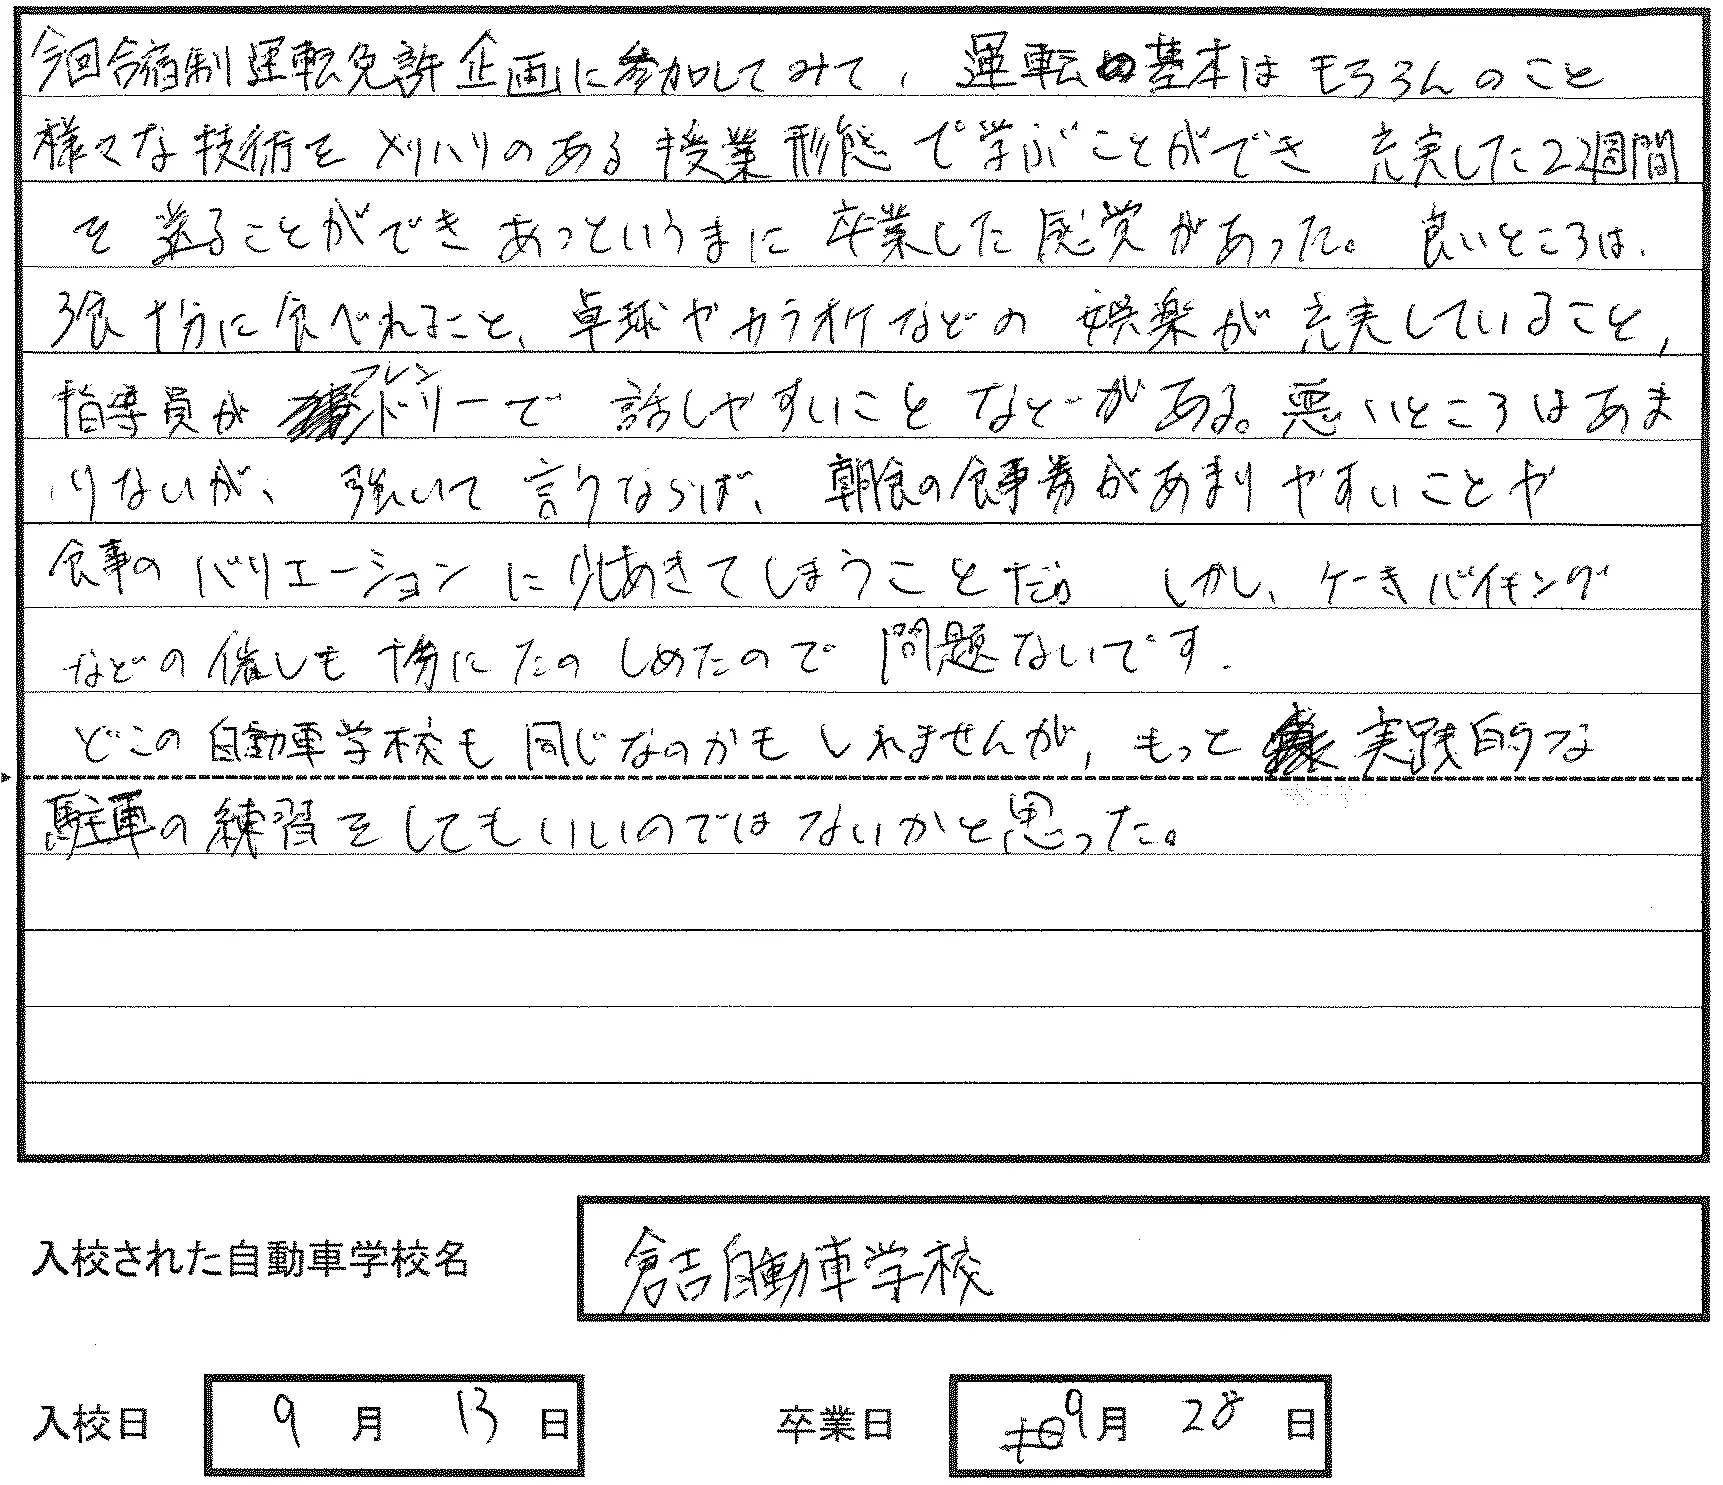 今回合宿制運転免許企画に参加してみて、運転の基本はもちろんのこと
様々な技術をメリハリのある授業形態で学ぶことができ 充実した2週間
を送ることができあっというまに卒業した感覚があった。良いところは、
3食十分に食べれること、卓球やカラオケなどの娯楽が充実していること、
指導員がフレンドリーで話しやすいことなどがある。悪いところはあま
りないが、強いて言うならば、朝食の食事券があまりやすいことや
食事のバリエーションに少しあきてしまうことだ。しかし、ケーキバイキング
などの催しも十分にたのしめたので問題ないです.
どこの自動車学校も同じなのかもしれませんが、もっと実践的な
駐車の練習をしてもいいのではないかと思った。
入校された自動車学校名 倉吉自動車学校
入校日 9月13日 卒業日 9月28日